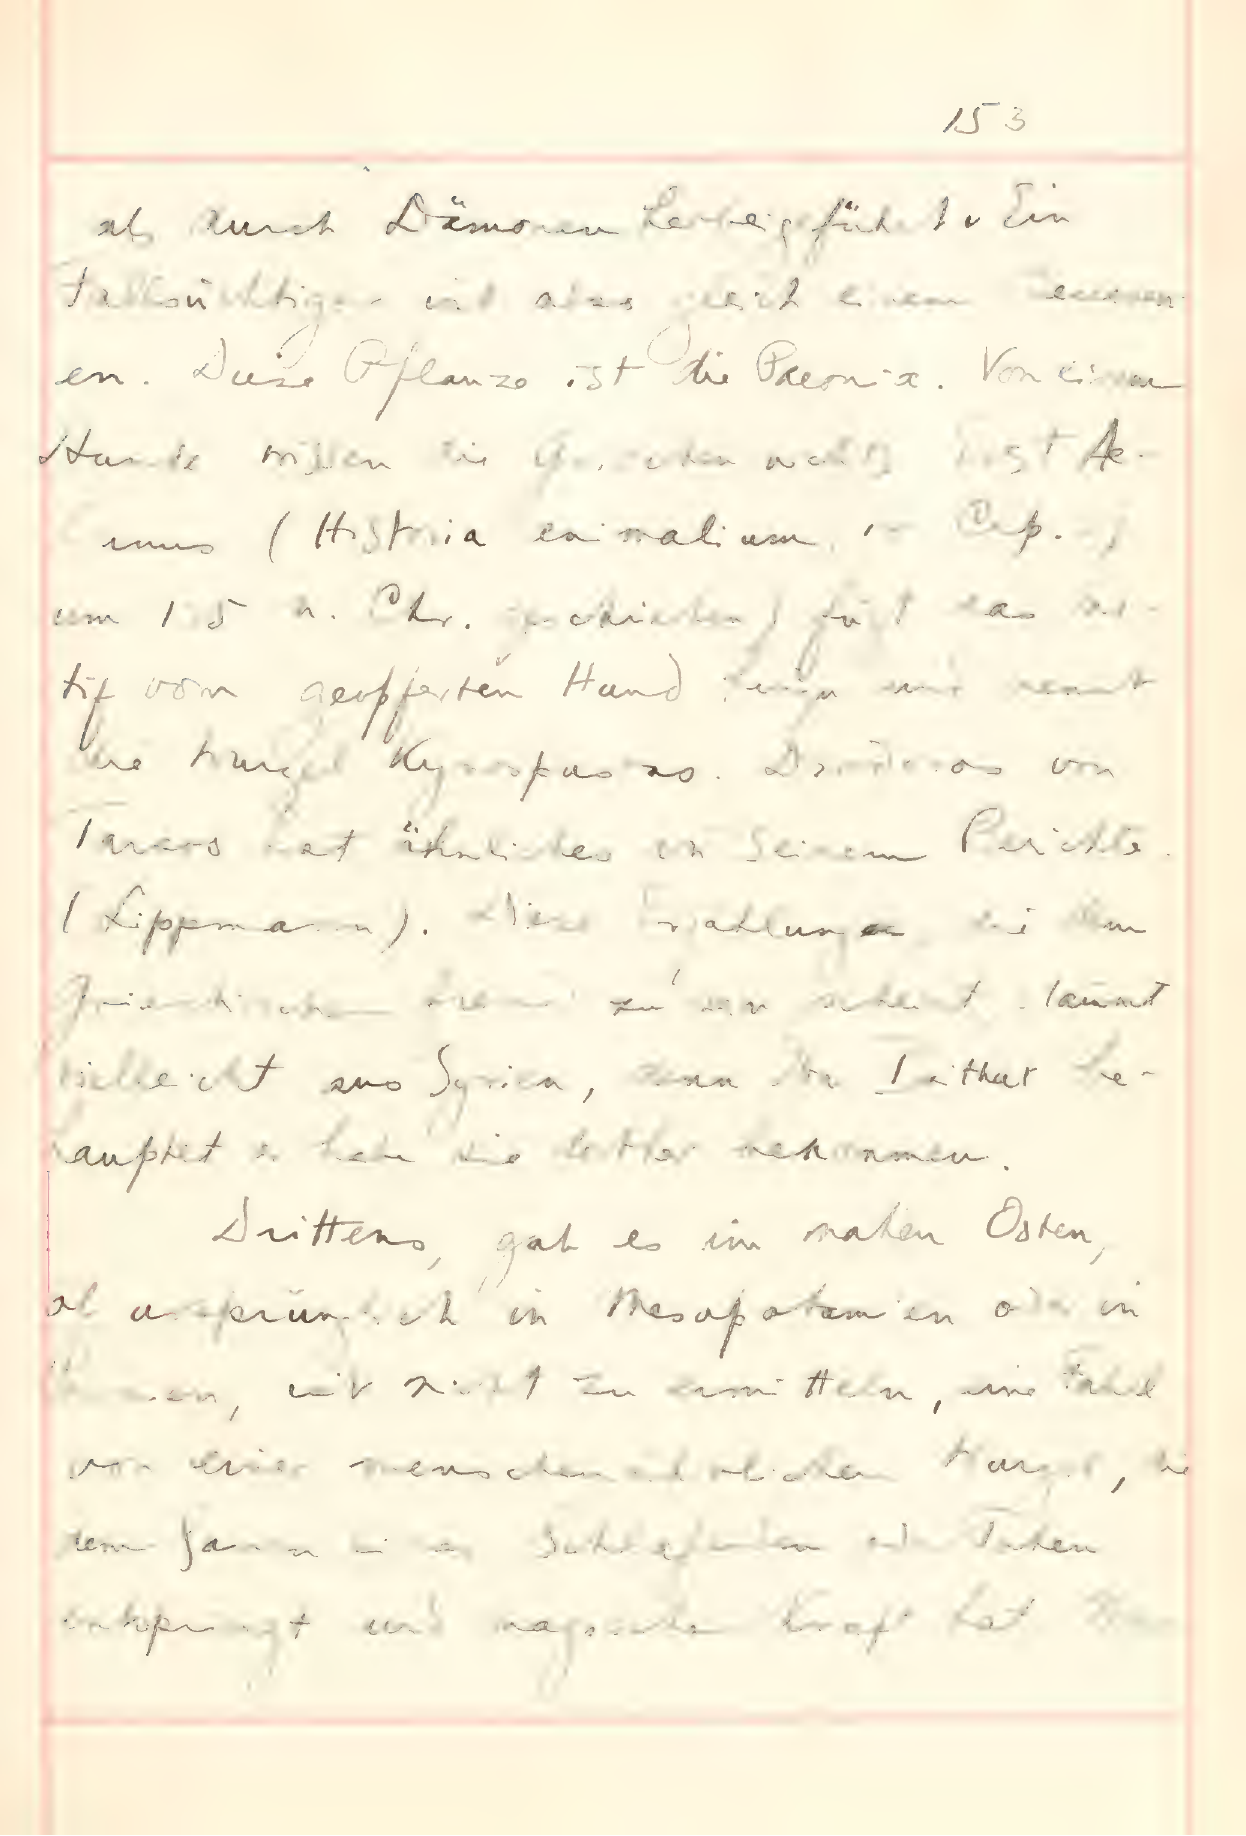 153
als durch Dämonen herbeigeführt. Ein
Fallsüchtiger wird also gleich einem Besessen-
en. Diese Pflanze ist die Paeonia. Von einem
Hunde wissen die Griechen nichts. Erst Ae-
(Historia animalium, Cap.
um n. Chr. geschrieben) fügt das Mo-
tif vom geopferten Hund hinzu und nennt
die Wurzel Kynospastos. von
hat ähnliches in seinem Berichte.
(Lippmann). Diese Erzählungen, die dem
Griechischen fremd zu sein scheint stammt
vielleicht aus Syrien, denn Ibn Baithar be-
hauptet er habe sie dorther bekommen.
Drittens, gab es im nahen Osten,
ob ursprünglich in Mesopotamien oder in
nicht zu ermitteln, eine Fabel
von einer menschenähnlichen Wurzel, die
dem Samen eines Schlafenden oder Toten
entspringt und magische Kraft hat.